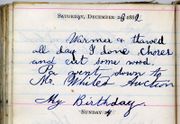 SATURDAY, DECEMBER 28 1889
Warmer & thawed
all day I done chores
and cut some wood.
Pa went down to
Mr. Whites Auction
My Birthday.
SUNDAY